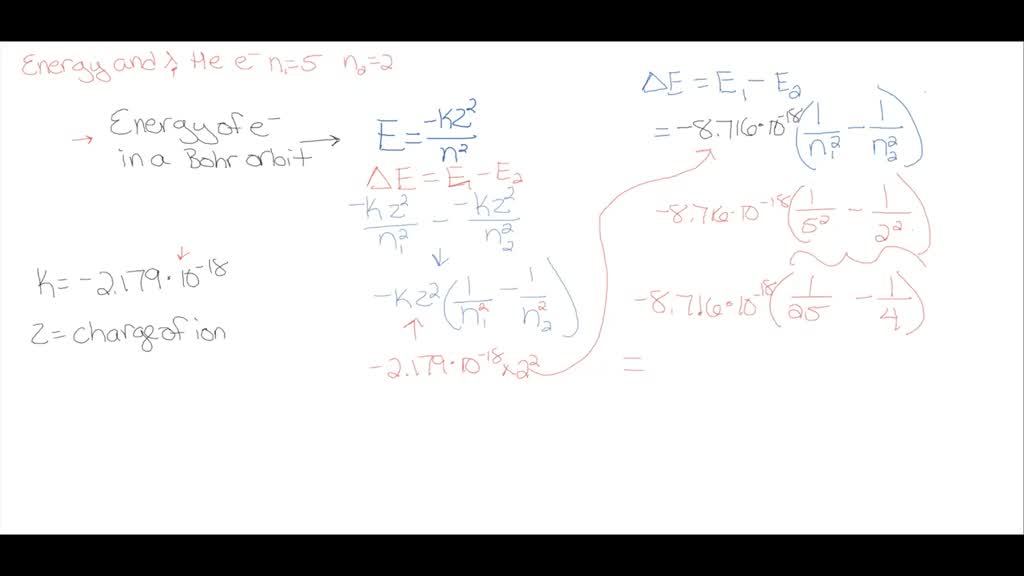 Energy and λ, He e⁻ n₁=5 n₂=2
→ Energy of e⁻
in a Bohr orbit →
E = -KZ²/n²
ΔE = E₁ - E₂
-KZ²/n₁² - -KZ²/n₂²
↓
-KZ² (1/n₁² - 1/n₂²)
↑
-2.179·10⁻¹⁸ x 2²
K = -2.179·10⁻¹⁸
Z = charge of ion
ΔE = E₁ - E₂
= -8.716·10⁻¹⁸ (1/n₁² - 1/n₂²)
-8.716·10⁻¹⁸ (1/5² - 1/2²)
-8.716·10⁻¹⁸ (1/25 - 1/4)
=